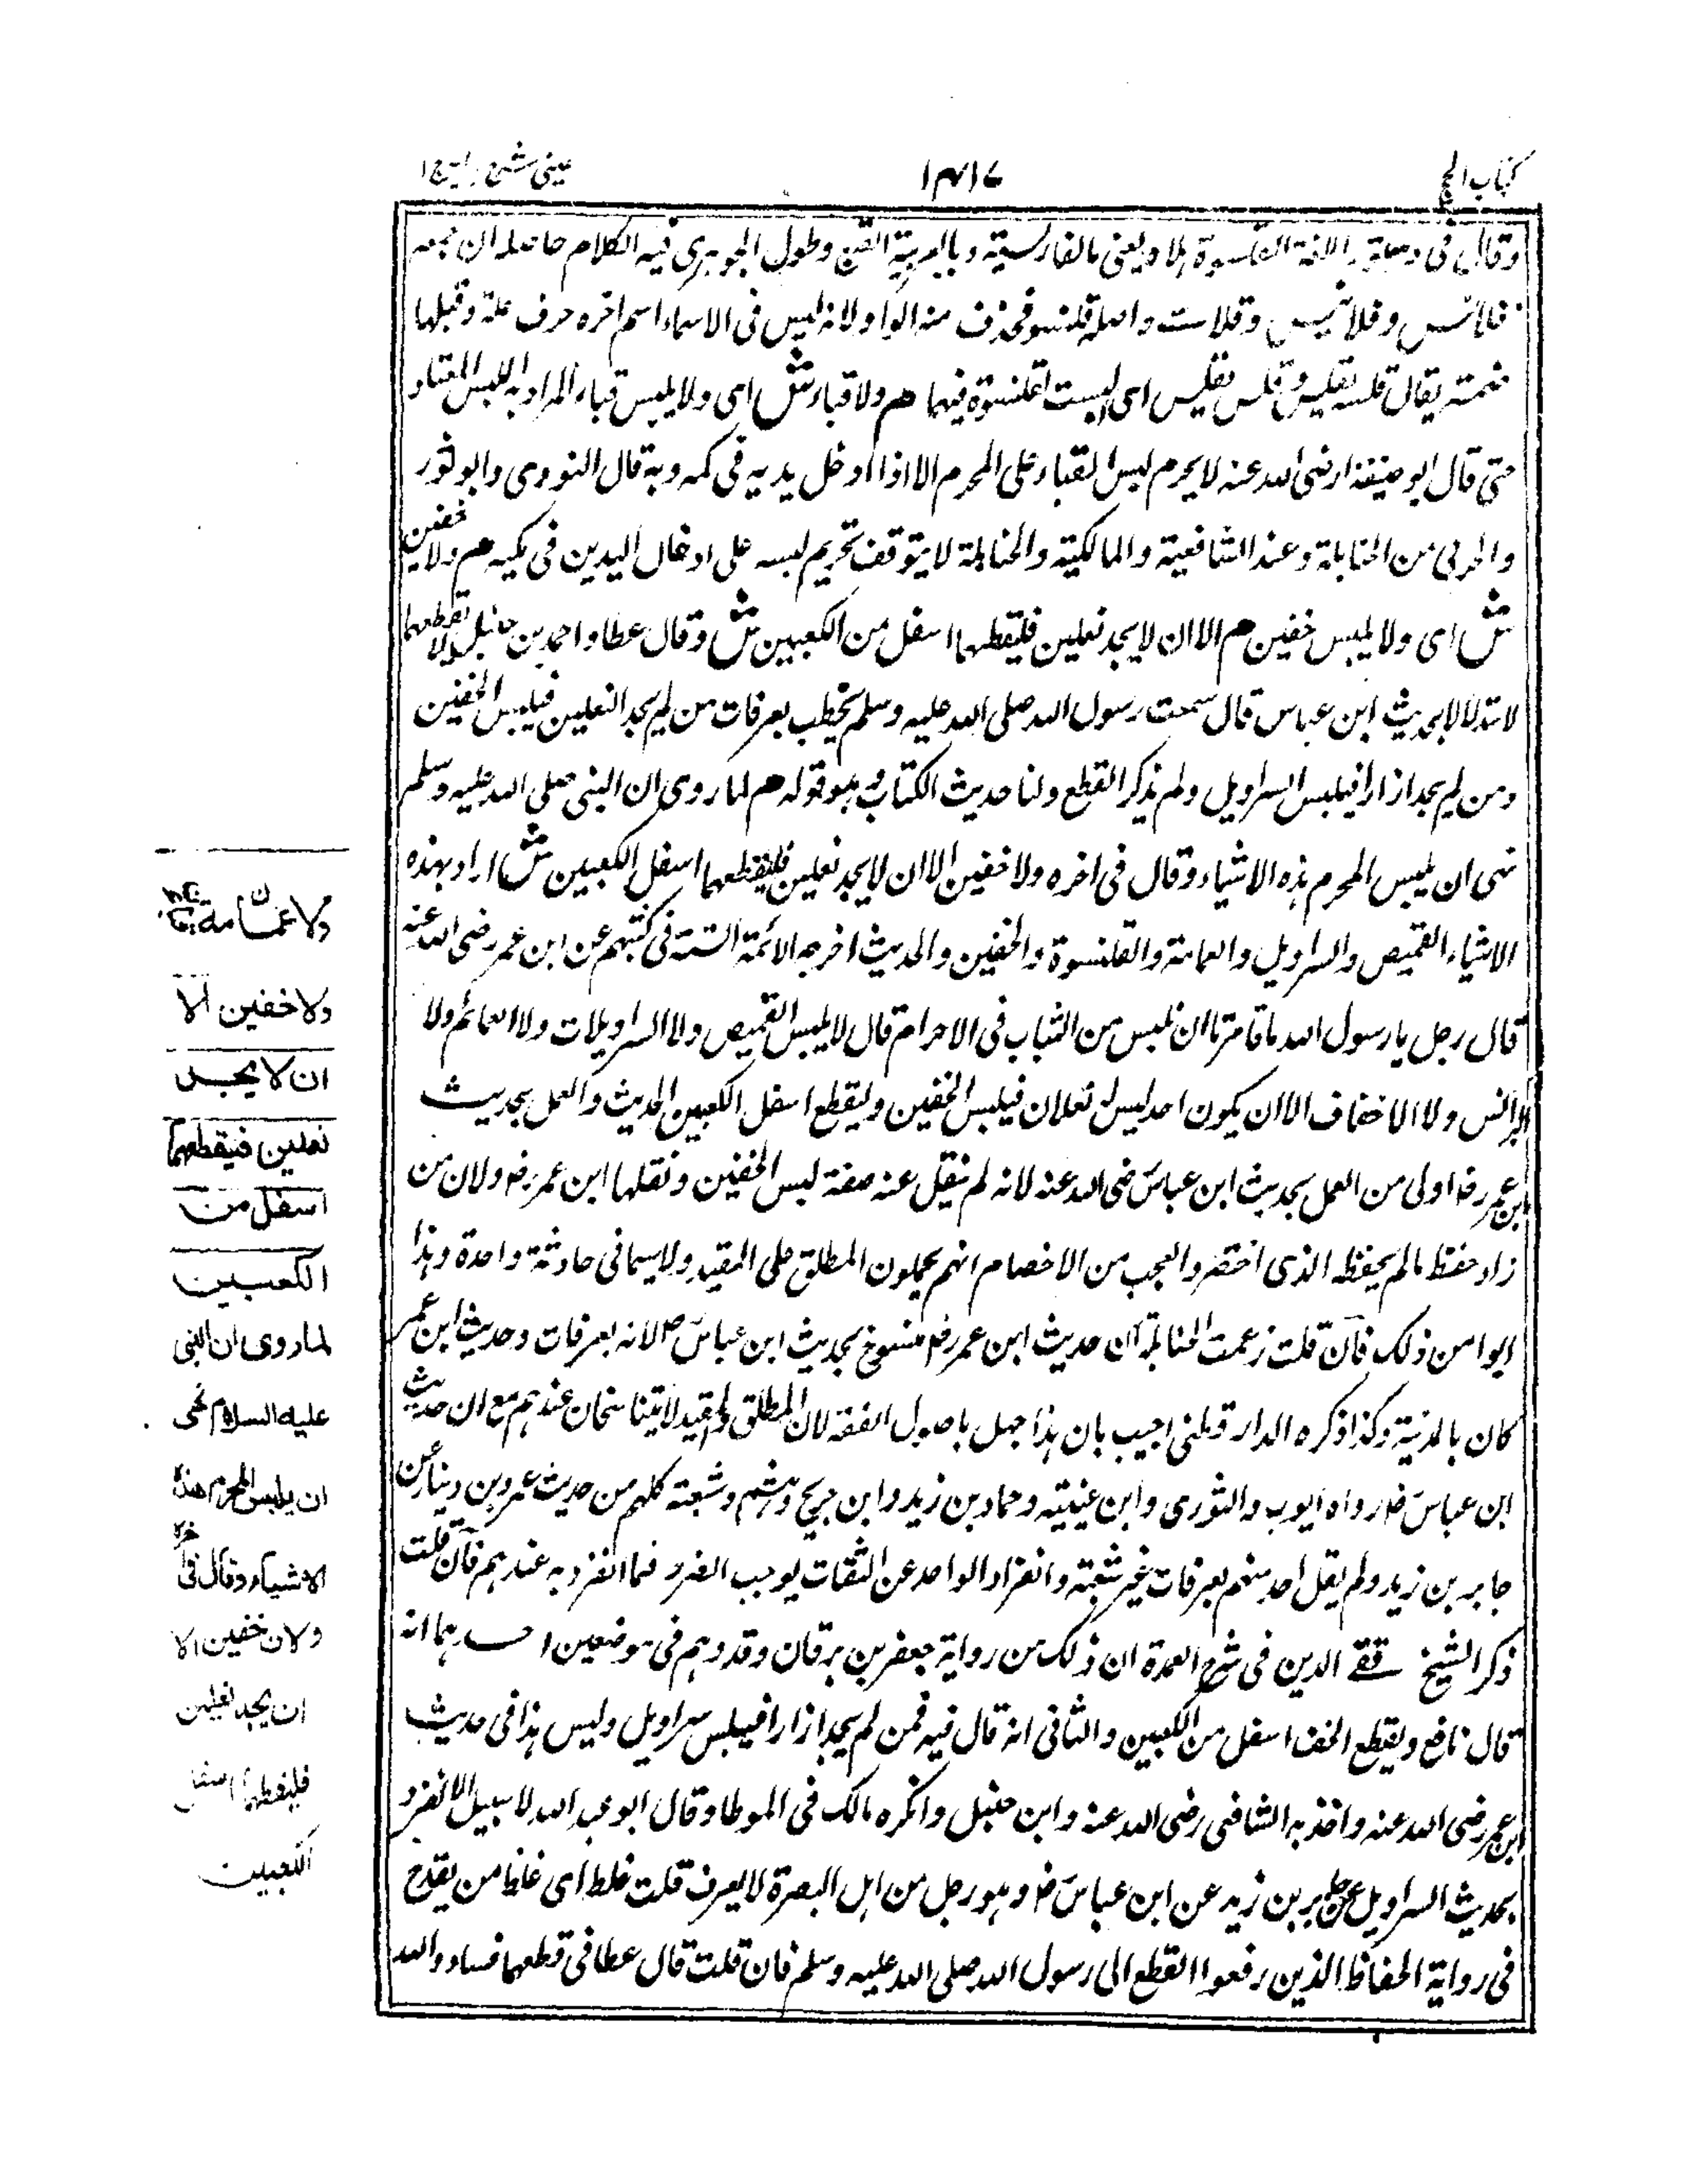 كتاب الحج
١٤١٧
عينى شرح هداية ج ١
وقال فى اللغة القلنسوة كلاه يعنى بالفارسية وبالعربية القبع وطول الجوهرى فيه الكلام حاصله ان جمعه
قلانس وقلانيس وقلاس واصله قلنسو فحذف منه الواو لانه ليس فى الاسماء اسم اخره حرف علة وقبلها
ضمة يقال قلسه تقليس وقلس تقليس اى لبست القلنسوة فيهما هم ولا قباء ش اى ولا يلبس قباء المراد به اللبس المعتاد
حتى قال ابو حنيفة رضى الله عنه لا يحرم لبس القباء على المحرم الا اذا ادخل يديه فى كمه وبه قال النووى وابو ثور
والحربى من الحنابلة وعند الشافعية والمالكية والحنابلة لا يتوقف تحريم لبسه على ادخال اليدين فى كميه هم ولا خفين
ش اى ولا يلبس خفين هم الا ان لا يجد نعلين فليقطعهما اسفل من الكعبين ش وقال عطا واحمد بن حنبل ولا يقطعهما
لاستدلالا بحديث ابن عباس قال سمعت رسول الله صلى الله عليه وسلم يخطب بعرفات من لم يجد النعلين فيلبس الخفين
ومن لم يجد ازارا فيلبس السراويل ولم يذكر القطع ولنا حديث الكتاب وهو قوله هم لما روى ان النبى صلى الله عليه وسلم
نهى ان يلبس المحرم هذه الاشياء وقال فى اخره ولا خفين الا ان لا يجد نعلين فليقطعهما اسفل الكعبين ش اراد بهذه
الاشياء القميص والسراويل والعمامة والقلنسوة والخفين والحديث اخرجه الائمة الستة فى كتبهم عن ابن عمر رضى الله عنه
قال رجل يا رسول الله ما تامرنا ان نلبس من الثياب فى الاحرام قال لا يلبس القميص ولا السراويلات ولا العمائم ولا
البرانس ولا الاخفاف الا ان يكون احد ليس له نعلان فيلبس الخفين وليقطع اسفل الكعبين الحديث والعمل بحديث
ابن عمر رض اولى من العمل بحديث ابن عباس رضى الله عنه لانه لم ينقل عنه صفة لبس الخفين ونقلها ابن عمر رض ولان من
زاد حفظ مالم يحفظه الذى اختصر والعجب من الاخصام انهم يحملون المطلق على المقيد ولا سيما فى حادثة واحدة وهذا
ابوا من ذلك فان قلت زعمت الحنابلة ان حديث ابن عمر رض منسوخ بحديث ابن عباس رض لانه بعرفات وحديث ابن عمر
كان بالمدينة وكذا ذكره الدار قطنى اجيب بان هذا جهل باصول الفقه لان المطلق والمقيد لا يتناسخان عندهم مع ان حديث
ابن عباس رض رواه ايوب والثورى وابن عيينة وحماد بن زيد وابن جريج وهشيم وشعبة كلهم من حديث عمرو بن دينار عن
جابر بن زيد ولم يقل احد منهم بعرفات غير شعبة وانفراد الواحد عن الثقات يوجب الضرر فما انفرد به عندهم فان قلت
ذكر الشيخ تقى الدين فى شرح العمدة ان ذلك من رواية جعفر بن برقان وقد وهم فى موضعين احدهما انه
قال نافع ويقطع الخف اسفل من الكعبين والثانى انه قال فيه فمن لم يجد ازارا فيلبس سراويل وليس هذا فى حديث
ابن عمر رضى الله عنه واخذ به الشافعى رضى الله عنه وابن حنبل وانكره مالك فى الموطا وقال ابو عبد الله لا سبيل الا تفرد
بحديث السراويل عن جابر بن زيد عن ابن عباس رض وهو رجل من اهل البصرة لا يعرف قلت غلط اى غلط من يقدح
فى رواية الحفاظ الذين رفعوا القطع الى رسول الله صلى الله عليه وسلم فان قلت قال عطا فى قطعهما فساد والله
ولا عمامة
ولا خفين الا
ان لا يجد
نعلين فيقطعهما
اسفل من
الكعبين
لما روى ان النبى
عليه السلام نهى
ان يلبس المحرم هذه
الاشياء وقال فى اخره
ولان خفين الا
ان يجد نعلين
فليقطعهما اسفل
الكعبين